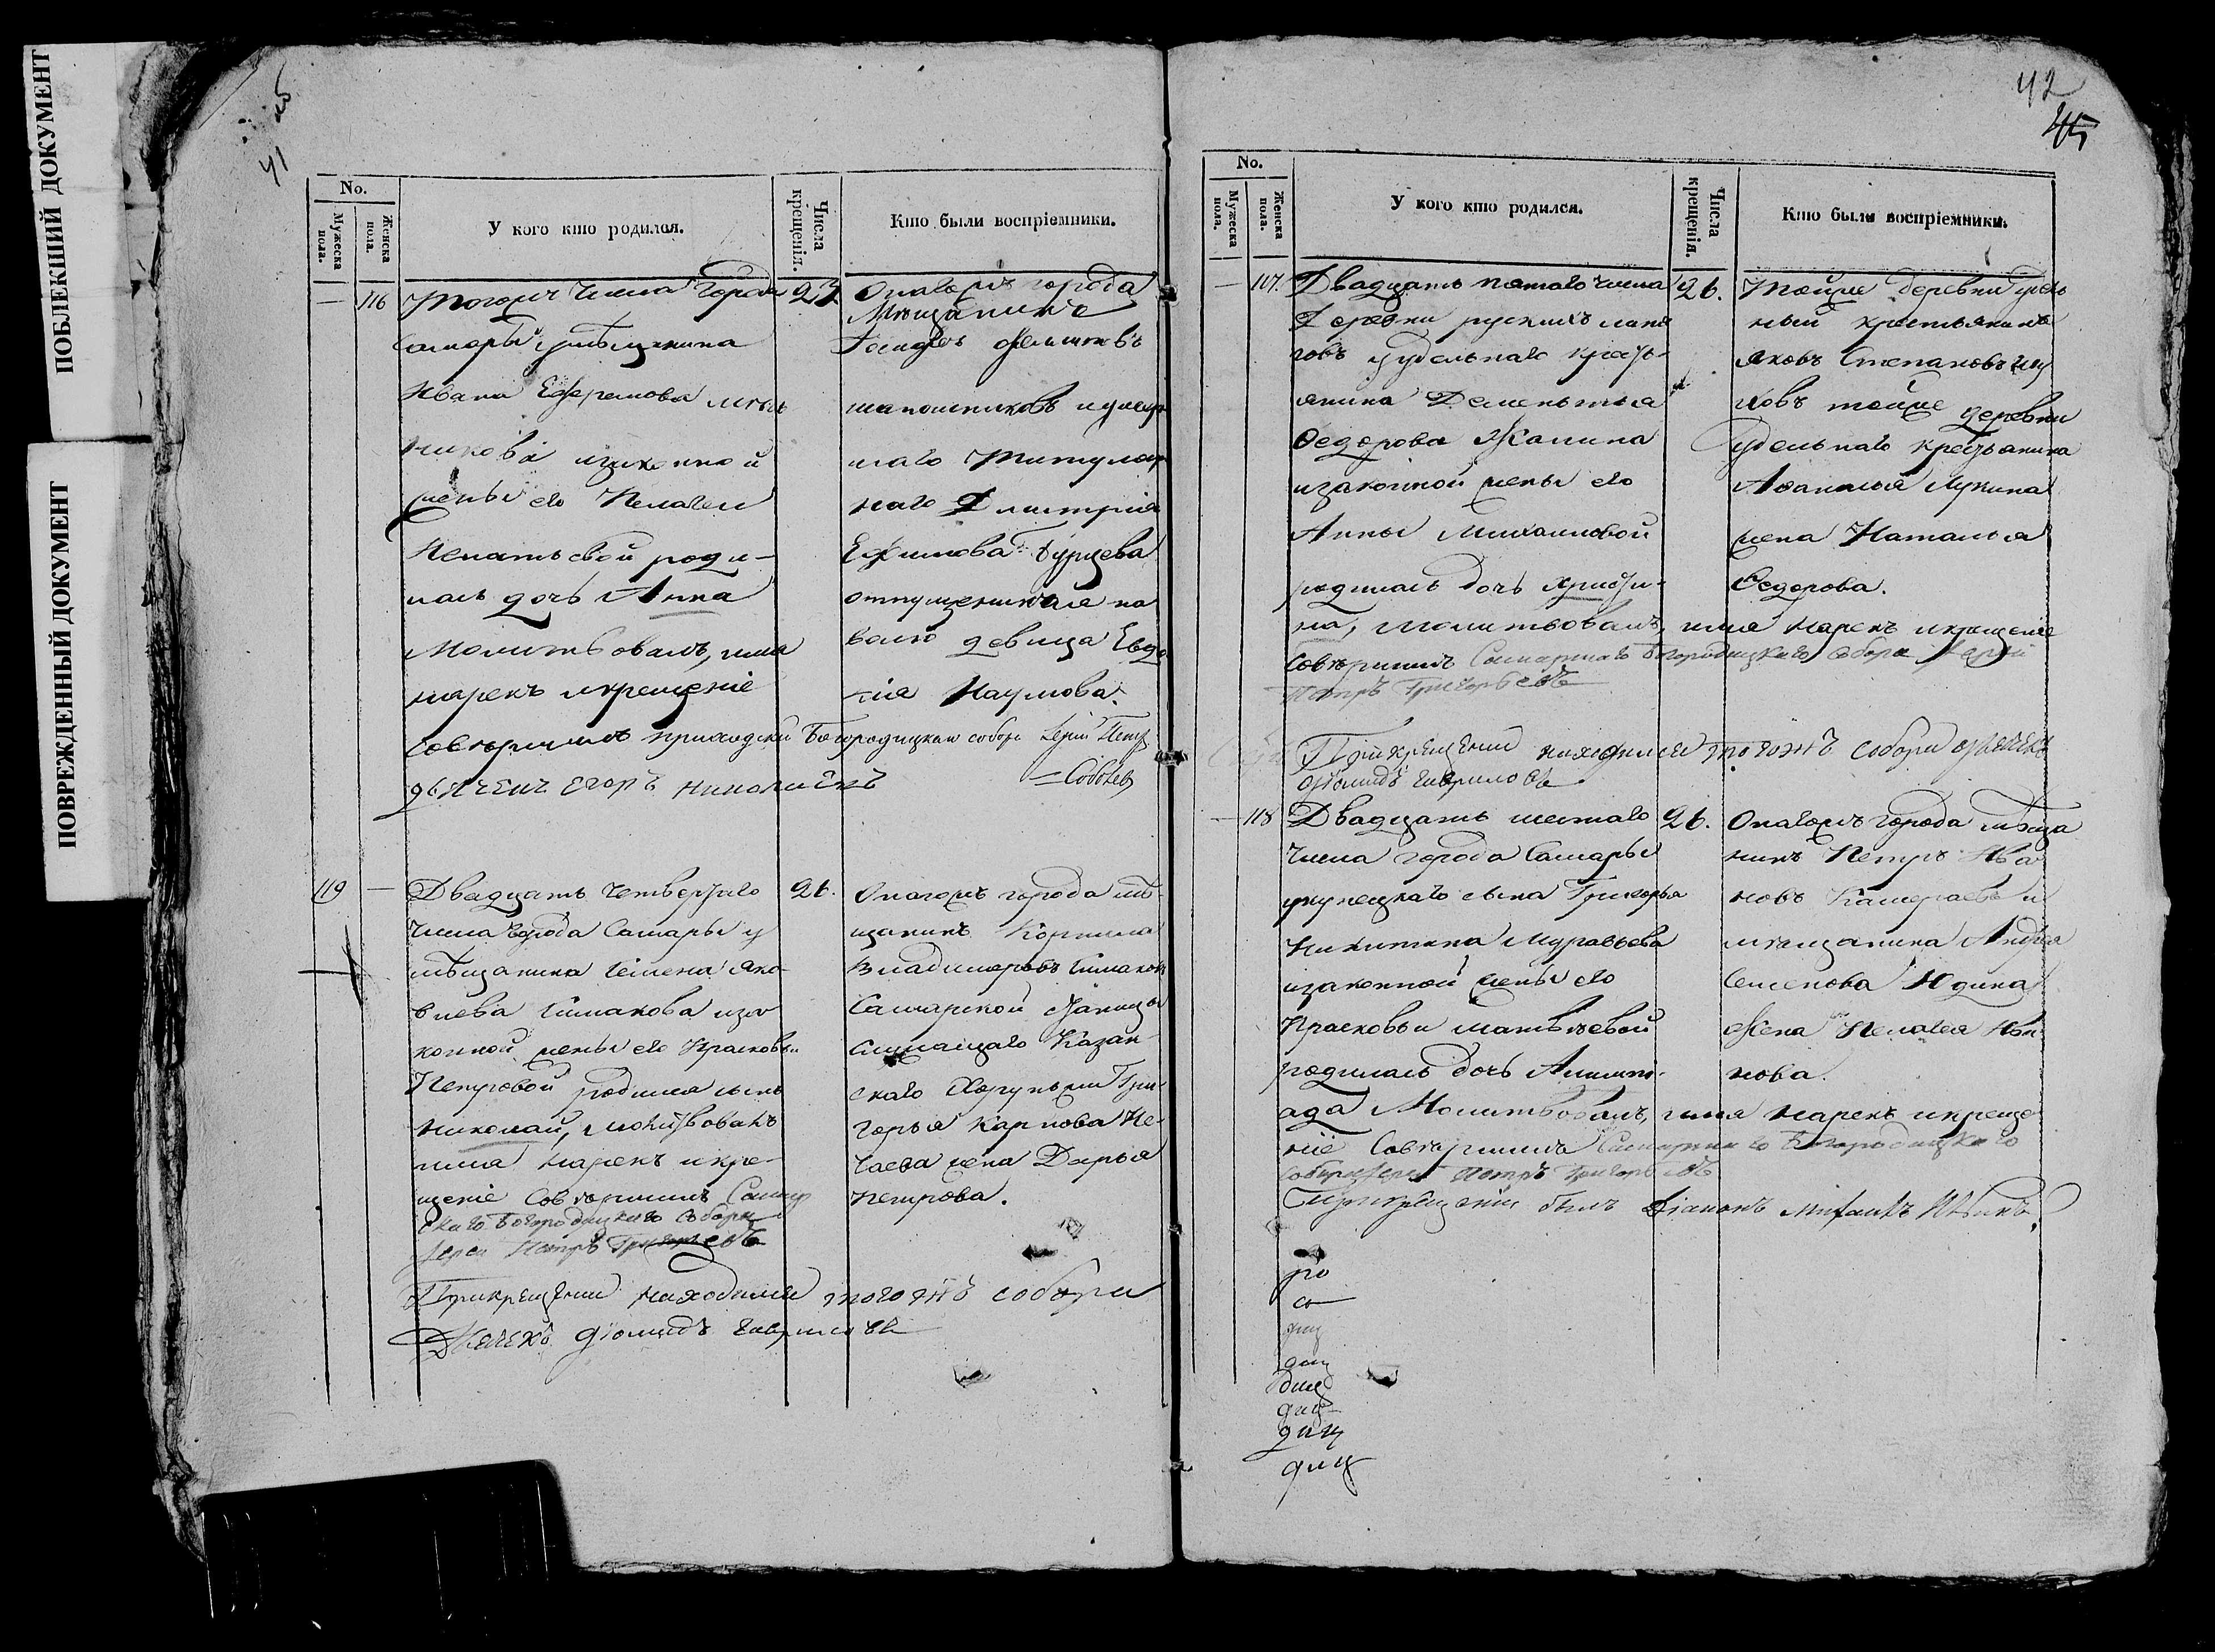 ПОБЛЕКШИЙ ДОКУМЕНТ
ПОВРЕЖДЕННЫЙ ДОКУМЕНТ
41
No.
Мужеска пола.
Женска пола.
У кого кто родился.
Числа крещенія.
Кто были воспріемники.
— 116
Тогожъ числа города
Самары у мѣщанина
Ивана Ефремова
никова изаконной
жены его Пелагеи
Игнатьевой роди-
лась дочь Анна
Молитвовалъ, имя
нарекъ икрещеніе
совершилъ приходской Богородицкаго собора Іерей Петръ
дьячекъ Егоръ Николаевъ
= Соболев
27
Онагожъ города
Мѣщанинъ
шапошниковъ и
наго Титуляр
наго Дмитрія
Ефимова Бурцева
отпущенная на
волю девица Евдо
кія Наумова.
119 —
Двадцать четвертаго
числа города Самары у
мѣщанина Семена Яко-
влева Симакова изза
конной жены его Прасковьи
Петровой родился сынъ
Николай, молитвовалъ
имя нарекъ икре-
щеніе совершилъ Самар
скаго Богородицкаго Собора
Іерей Петръ Григорьевъ
При крещении находился тогожъ собора
Дьячекъ Діомидъ Гавриловъ
26.
Онагожъ города мѣ-
щанинъ Корнила
Владимеровъ Симаковъ
Самарской станицы
Казан-
скаго Хорунжаго Гри-
горья Карпова Не-
чаева жена Дарья
Петрова.
42
45
No.
Мужеска пола.
Женска пола.
У кого кто родился.
Числа крещенія.
Кто были воспріемники.
— 117.
Двадцать пятаго числа
Деревни рускихъ липя
говъ уудельнаго кресть-
янина Дементья
Федорова Жалина
изаконной жены его
Анны Михаиловой
родилась дочь Христи-
на, молитвовалъ, имя нарекъ икрещеніе
совершилъ Самарскаго Богородицкаго Собора Іерей
Петръ Григорьевъ
При крещении находился тогожъ собора дьячекъ
Діомидъ Гавриловъ
26.
Тойже деревни удель
ный крестьянинъ
Яковъ Степановъ
ковъ тойже деревни
удельнаго крестьянина
Афанасья Лукина
жена Наталья
Федорова.
— 118
Двадцать шестаго
числа города Самары
укупецкаго сына Григорья
Никитина Муравьева
изаконной жены его
Прасковьи Матвеевой
родилась дочь Алимпі-
ада Молитвовалъ, имя нарекъ икреще
ніе совершилъ Самарскаго Богородицкаго
собора Іерей Петръ Григорьевъ
При крещеніи былъ Діаконъ Михаилъ Ивановъ
26.
Онагожъ города мѣща
нинъ Петръ Ива
новъ и
мѣщанина Андрея
Семенова Юдина
жена Пелагея Ива
нова.
ро
диц
диц
диц
диц
диц